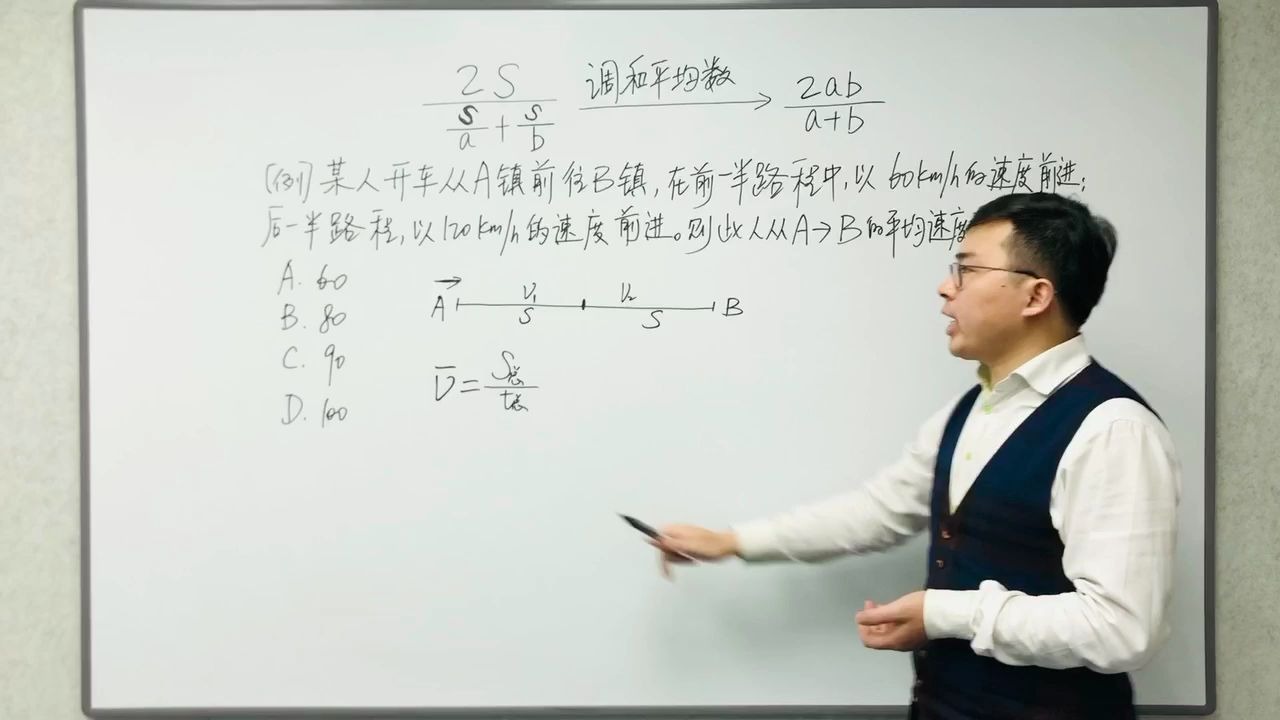 2S / (s/a + s/b) 调和平均数 → 2ab / (a+b)
[例] 某人开车从A镇前往B镇,在前一半路程中,以60km/h的速度前进;
后一半路程,以120km/h的速度前进。则此人从A→B的平均速度
A. 60
B. 80
C. 90
D. 100
A V₁ V₂ B
S S
V̄ = S总 / t总